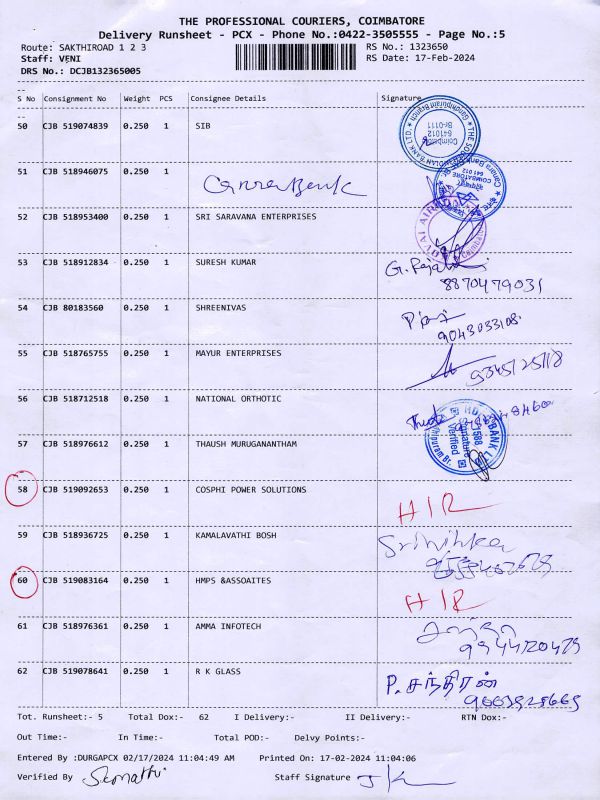 THE PROFESSIONAL COURIERS, COIMBATORE
Delivery Runsheet - PCX - Phone No.:0422-3505555 - Page No.:5
Route: SAKTHIROAD 1 2 3 RS No.: 1323650
Staff: VENI RS Date: 17-Feb-2024
DRS No.: DCJB132365005
S No Consignment No Weight PCS Consignee Details Signature
50 CJB 519074839 0.250 1 SIB
Coimbatore 641012 Br-0111
51 CJB 518946075 0.250 1
Canara Bank
52 CJB 518953400 0.250 1 SRI SARAVANA ENTERPRISES
53 CJB 518912834 0.250 1 SURESH KUMAR
8870479031
54 CJB 80183560 0.250 1 SHREENIVAS
9043033108
55 CJB 518765755 0.250 1 MAYUR ENTERPRISES
9345125118
56 CJB 518712518 0.250 1 NATIONAL ORTHOTIC
57 CJB 518976612 0.250 1 THAUSH MURUGANANTHAM
Signature Verified
58 CJB 519092653 0.250 1 COSPHI POWER SOLUTIONS
HIR
59 CJB 518936725 0.250 1 KAMALAVATHI BOSH
60 CJB 519083164 0.250 1 HMPS &ASSOAITES
HIR
61 CJB 518976361 0.250 1 AMMA INFOTECH
9944720479
62 CJB 519078641 0.250 1 R K GLASS
P. சந்திரன்
Tot. Runsheet:- 5 Total Dox:- 62 I Delivery:- II Delivery:- RTN Dox:-
Out Time:- In Time:- Total POD:- Delvy Points:-
Entered By :DURGAPCX 02/17/2024 11:04:49 AM Printed On: 17-02-2024 11:04:06
Verified By Staff Signature